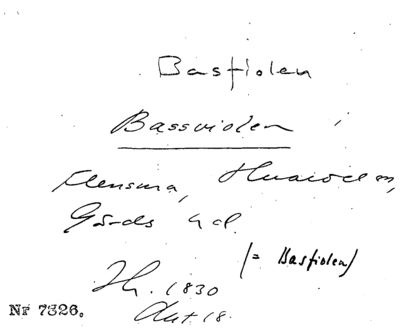 Basfiolen
Bassviolen
Flensma, Hvalöen,
Gårds hd.
(= Basfiolen)
Jh. 1830
Akt. 18.
Nr 7326.